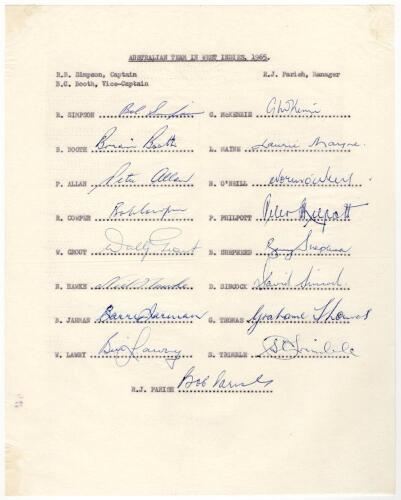 AUSTRALIAN TEAM IN WEST INDIES, 1965.
R.B. Simpson, Captain R.J. Parish, Manager
B.C. Booth, Vice-Captain
R. SIMPSON Bob Simpson G. McKENZIE
B. BOOTH Brian Booth L. MAINE Laurie Mayne.
P. ALLAN Peter Allan N. O'NEILL Norman O'Neill
R. COWPER Bob Cowper P. PHILPOTT Peter Philpott
W. GROUT Wally Grout B. SHEPHERD Barry Shepherd
N. HAWKE Neil Hawke D. SINCOCK David Sincock
B. JARMAN Barry Jarman G. THOMAS Grahame Thomas
W. LAWRY Bill Lawry S. TRIMBLE
R.J. PARISH Bob Parish